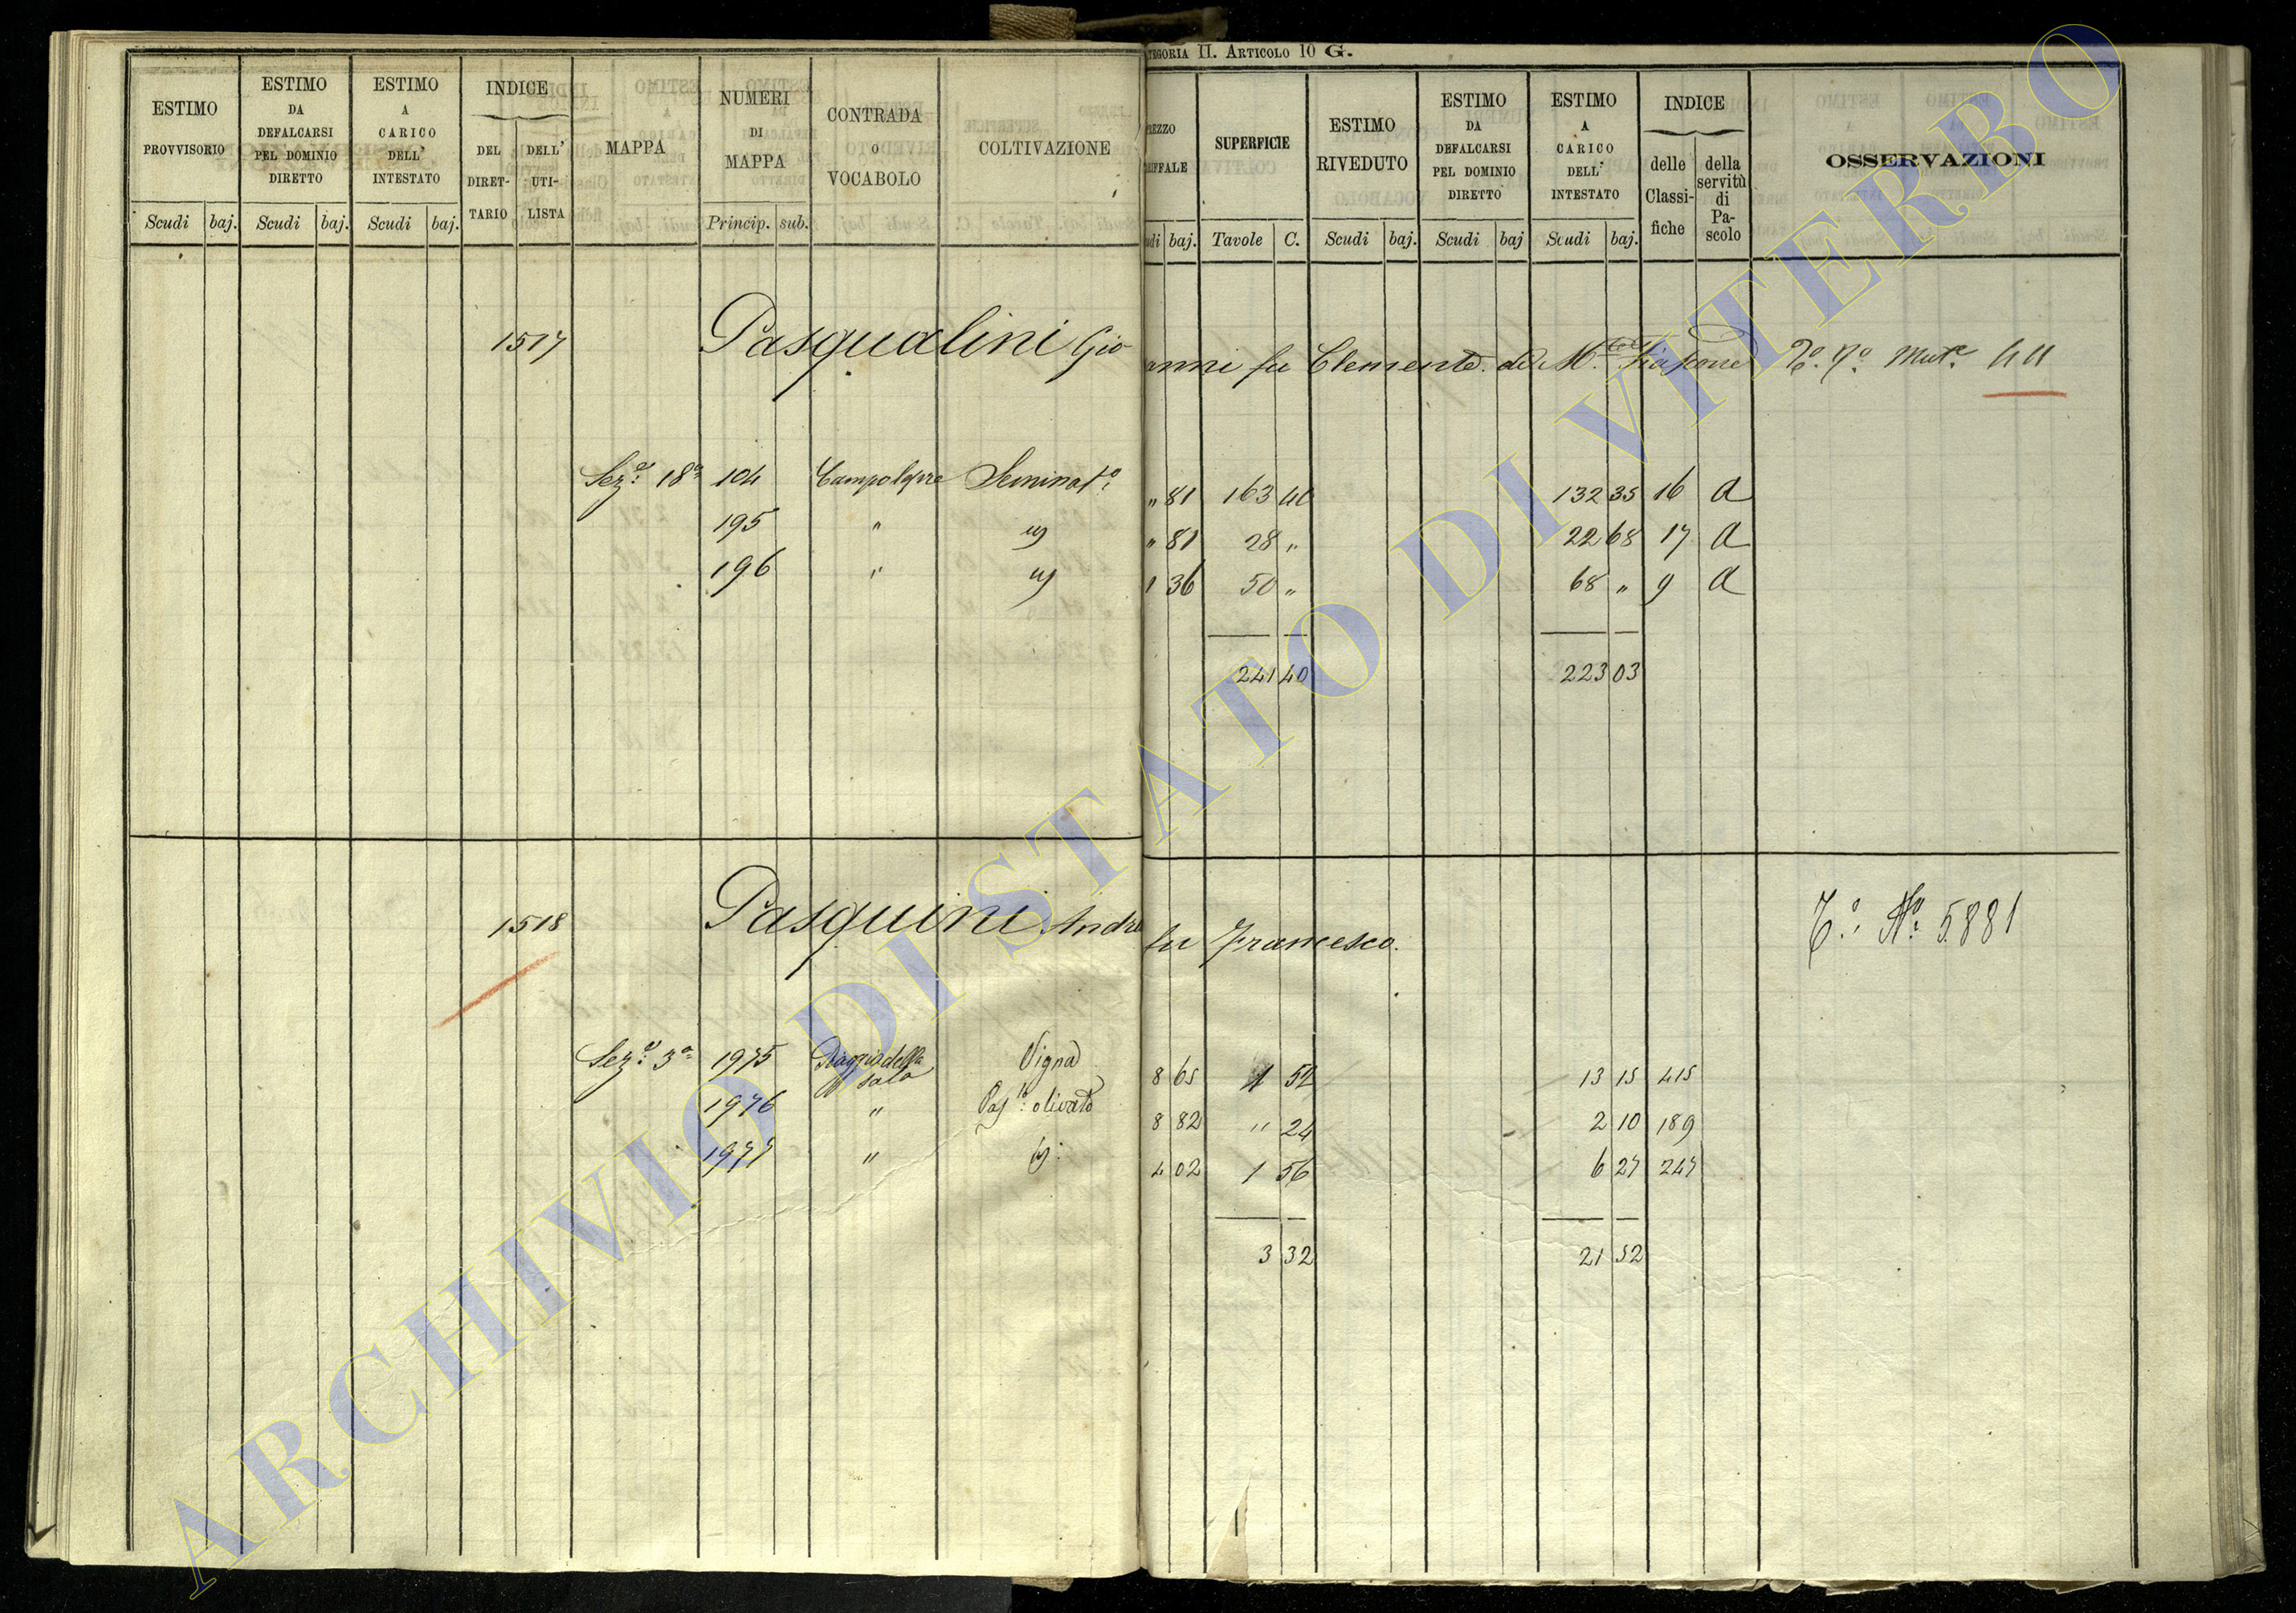 TEGORIA II. ARTICOLO 10 G.
ESTIMO PROVVISORIO
ESTIMO DA DEFALCARSI PEL DOMINIO DIRETTO
ESTIMO A CARICO DELL' INTESTATO
INDICE
DEL DIRET-TARIO
DELL' UTI-LISTA
MAPPA
NUMERI DI MAPPA
CONTRADA O VOCABOLO
COLTIVAZIONE
SUPERFICIE
ESTIMO RIVEDUTO
ESTIMO DA DEFALCARSI PEL DOMINIO DIRETTO
ESTIMO A CARICO DELL' INTESTATO
INDICE
delle Classi-fiche
della servitù di Pa-scolo
OSSERVAZIONI
Scudi baj. Scudi baj. Scudi baj. Princip. sub. baj. Tavole C. Scudi baj. Scudi baj Scudi baj.
1517 Pasqualini Gio anni fu Clemente
Sez.e 18a 104 Seminato " 81 163 40 132 35 16 A
195 " " 81 28 " 22 68 17 A
196 " 1 36 50 " 68 " 9 A
241 40 223 03
1518 Pasquini Andre fu Francesco. T.o N.o 5881
Sez.e 3a 1975 Vigna 8 65 1 52 13 15 415
1976 " Pas.lo olivato 8 82 " 24 2 10 189
1977 " 4 02 1 56 6 27 247
3 32 21 52
ARCHIVIO DI STATO DI VITERBO